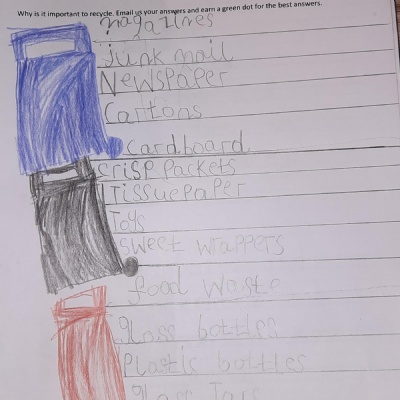 Why is it important to recycle. Email us your answers and earn a green dot for the best answers.
magazines
junk mail
Newspaper
Cartons
cardboard
crisp packets
Tissue paper
Toys
sweet wrappers
food waste
glass bottles
Plastic bottles
glass Jars